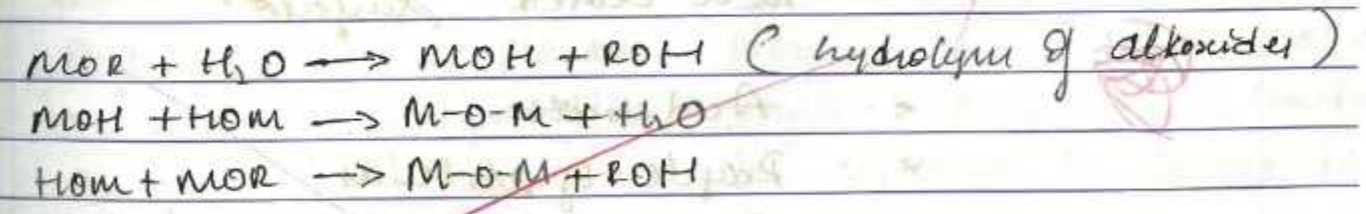 MOR + H₂O → MOH + ROH ( hydrolysis of alkoxides )
MOH + HOM → M-O-M + H₂O
HOM + MOR → M-O-M + ROH